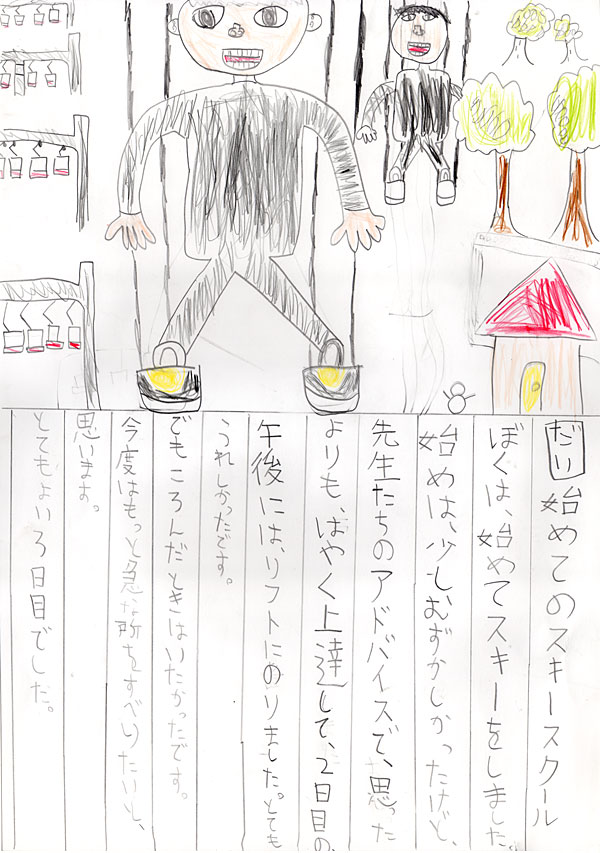 だい 始めてのスキースクール
ぼくは、始めてスキーをしました。
始めは、少しむずかしかったけど、
先生たちのアドバイスで、思った
よりも、はやく上達して、2日目の、
午後には、リフトにのりました。とても
うれしかったです。
でもころんだときはいたかったです。
今度はもっと急な所をすべりたいと、
思います。
とてもよい3日目でした。